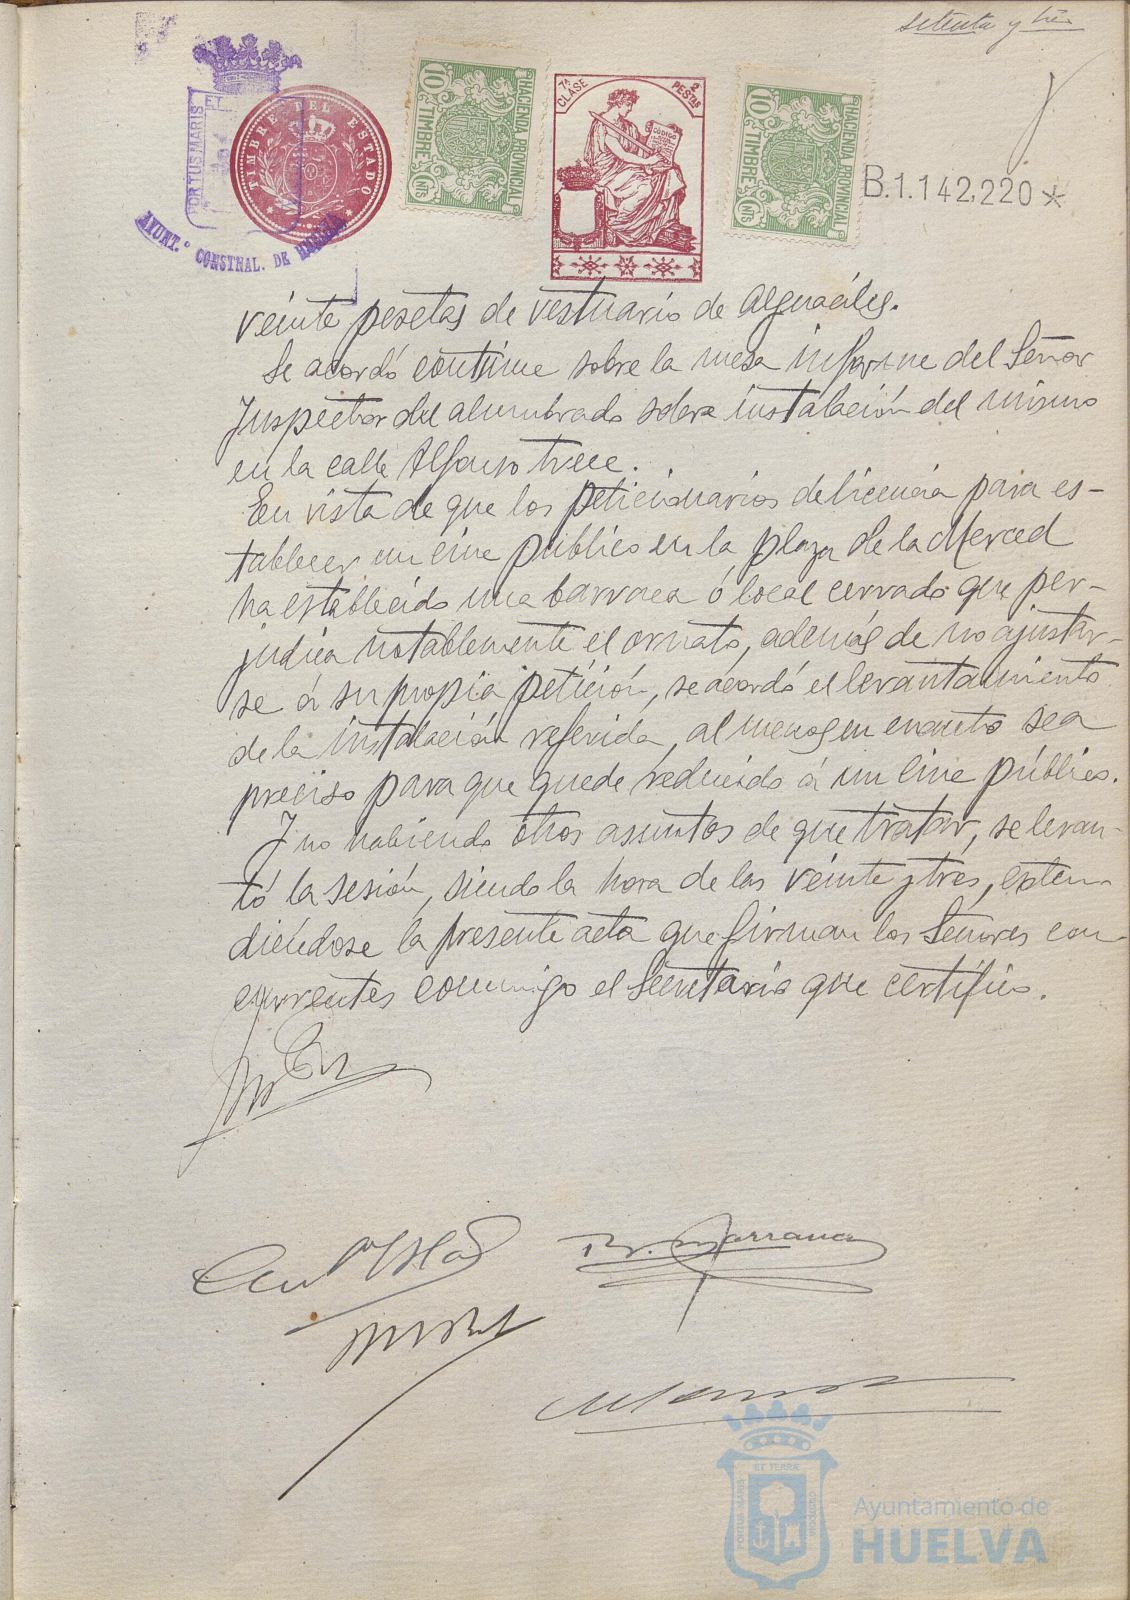 setenta y tres
PORTUS MARIS ET
AYUNT.º CONSTNAL. DE HUELVA
TIMBRE DEL ESTADO
HACIENDA PROVINCIAL
10 TIMBRE CNTS
7ª CLASE
2 PESTAS
CODIGO
HACIENDA PROVINCIAL
10 TIMBRE CNTS
B.1.142,220*
veinte pesetas de vestuario de Alguaciles.
Se acordó continue sobre la mesa informe del Señor
Inspector del alumbrado sobre instalación del mismo
en la calle Alfonso trece.
En vista de que los peticionarios de licencia para es-
tablecer un cine público en la plaza de la Merced
ha establecido una barraca ó local cerrado que per-
judica notablemente el ornato, además de no ajustar-
se á su propia petición, se acordó el levantamiento
de la instalación referida, al menos en cuanto sea
preciso para que quede reducido á un cine público.
Y no habiendo otros asuntos de que tratar, se levan-
tó la sesión, siendo la hora de las veinte y tres, exten-
diéndose la presente acta que firman los Señores con-
currentes conmigo el Secretario que certifico.
ET TERRÆ
PORTUS MARIS
CUSTODIA
Ayuntamiento de
HUELVA